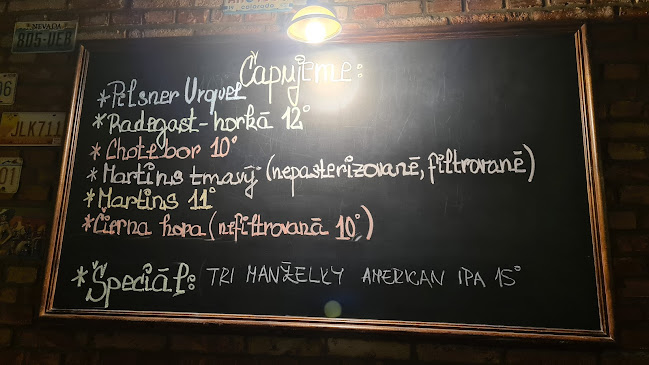 NEVADA
805·UEB
colorado
JLK711
Čapujeme:
*Pilsner Urquel
*Radegast-horkā 12°
*Chotebor 10°
*Martins tmavȳ (nepasterizovanē, filtrovanē)
*Martins 11°
*Čierna hora (nefiltrovanā 10°)
*Špeciāl: TRI MANŽELKY AMERICAN IPA 15°